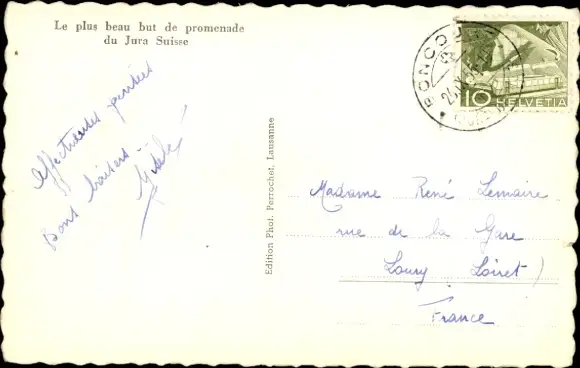 Le plus beau but de promenade
du Jura Suisse
Affectueuses pensées
Bons baisers
Edition Phot. Perrochet, Lausanne
BONCOURT
10 HELVETIA
Madame René Lemaire
rue de la Gare
Loury (Loiret)
France